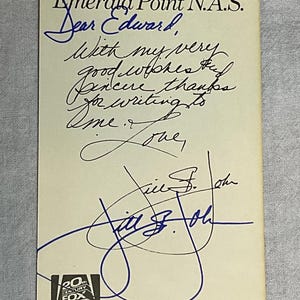 Emerald Point N.A.S.
Dear Edward,
With my very
good wishes &
sincere thanks
for writing to
me.
Love,
Jill St. John
Jill St. John
20th
CENTURY
FOX